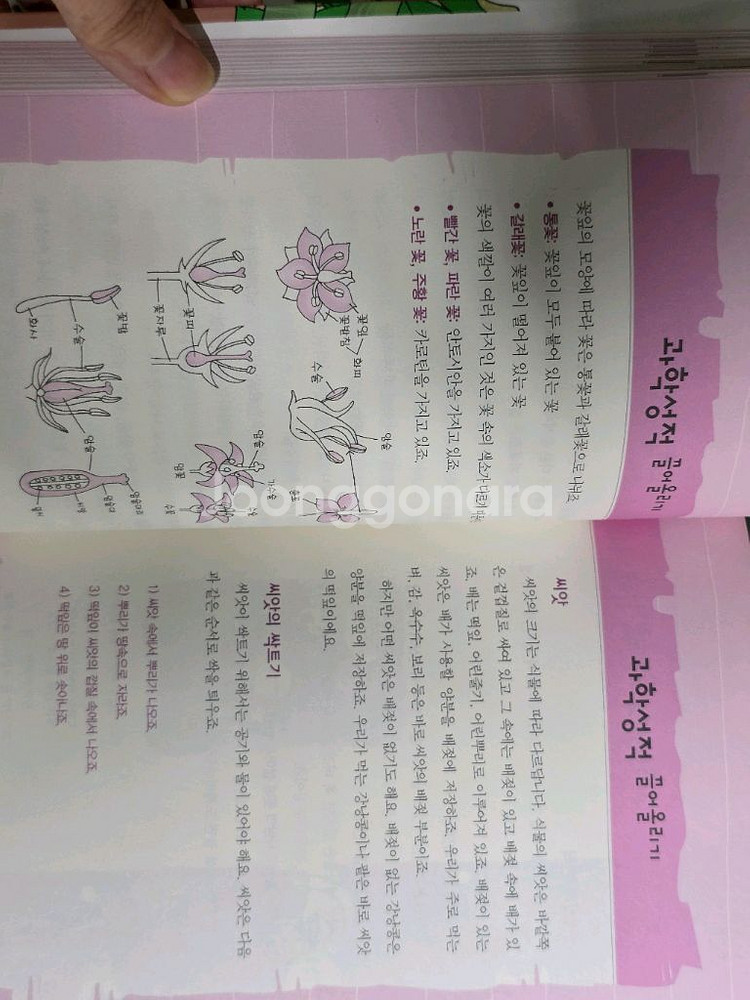 과학성적 끌어올리기
꽃잎의 모양에 따라 꽃은 통꽃과 갈래꽃으로 나눠죠
• 통꽃: 꽃잎이 모두 붙어 있는 꽃
• 갈래꽃: 꽃잎이 떨어져 있는 꽃
꽃의 색깔이 여러 가지인 것은 꽃 속의 색소가 다르기
• 빨간 꽃, 파란 꽃: 안토시안을 가지고 있죠.
• 노란 꽃, 주황 꽃: 카로틴을 가지고 있죠.
꽃잎
꽃받침
화피
수술
암술
꽃피
꽃자루
암술
가수술
암꽃
수꽃
꽃밥
수술
화사
암술
암술머리
암술대
씨방
밑씨
joonggonara
과학성적 끌어올리기
씨앗
씨앗의 크기는 식물에 따라 다르답니다. 식물의 씨앗은 바깥쪽
은 겉껍질로 싸여 있고 그 속에는 배젖이 있고 배젖 속에 배가 있
죠. 배는 떡잎, 어린줄기, 어린뿌리로 이루어져 있죠. 배젖이 있는
씨앗은 배가 사용할 양분을 배젖에 저장하죠. 우리가 주로 먹는
벼, 감, 옥수수, 보리 등은 바로 씨앗의 배젖 부분이죠.
하지만 어떤 씨앗은 배젖이 없기도 해요. 배젖이 없는 강낭콩은
양분을 떡잎에 저장하죠. 우리가 먹는 강낭콩이나 팥은 바로 씨앗
의 떡잎이에요.
씨앗의 싹트기
씨앗이 싹트기 위해서는 공기와 물이 있어야 해요. 씨앗은 다음
과 같은 순서로 싹을 틔우죠.
1) 씨앗 속에서 뿌리가 나오죠.
2) 뿌리가 땅속으로 자라죠.
3) 떡잎이 씨앗의 껍질 속에서 나오죠.
4) 떡잎은 땅 위로 솟아나죠.